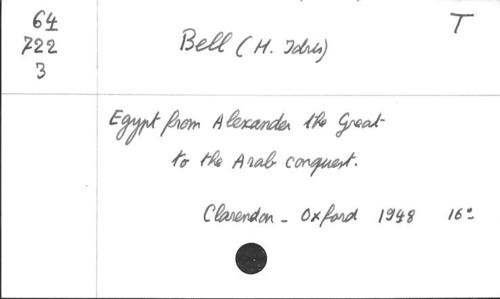 64
T
722
Bell (H. Idris)
3
Egypt from Alexander the Great
to the Arab conquest.
Clarendon - Oxford 1948 16°